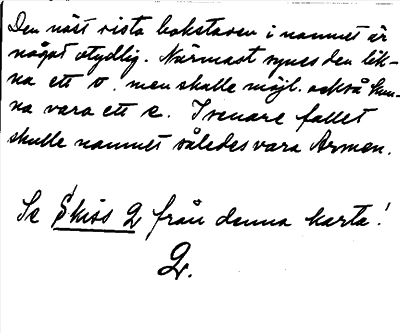 Den näst sista bokstaven i namnet är
något otydlig. Närmast synes den lik-
na ett o, men skulle möjl. också kun-
na vara ett e. I senare fallet
skulle namnet således vara Armen.
Se Skiss 2 från denna karta!
2.